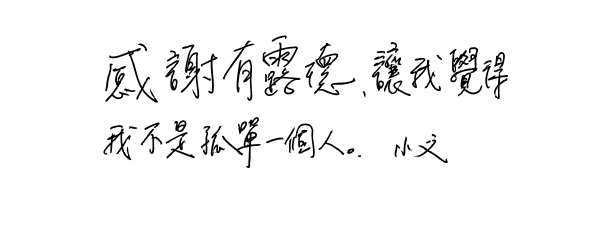 感謝有露德、讓我覺得
我不是孤單一個人。 小文